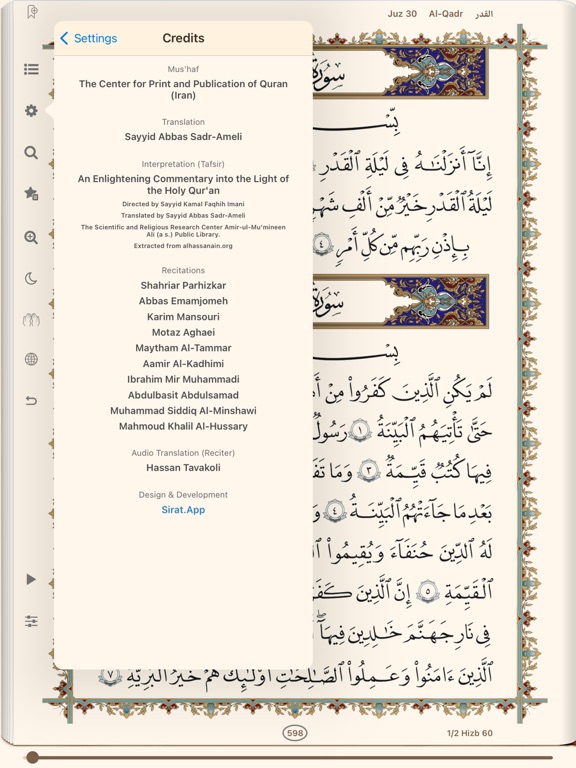 Juz 30 Al-Qadr القدر
Settings
Credits
Mus'haf
The Center for Print and Publication of Quran
(Iran)
Translation
Sayyid Abbas Sadr-Ameli
Interpretation (Tafsir)
An Enlightening Commentary into the Light of
the Holy Qur'an
Directed by Sayyid Kamal Faqhih Imani
Translated by Sayyid Abbas Sadr-Ameli
The Scientific and Religious Research Center Amir-ul-Mu'mineen
Ali (a s.) Public Library.
Extracted from alhassanain.org
Recitations
Shahriar Parhizkar
Abbas Emamjomeh
Karim Mansouri
Motaz Aghaei
Maytham Al-Tammar
Aamir Al-Kadhimi
Ibrahim Mir Muhammadi
Abdulbasit Abdulsamad
Muhammad Siddiq Al-Minshawi
Mahmoud Khalil Al-Hussary
Audio Translation (Reciter)
Hassan Tavakoli
Design & Development
Sirat.App
إِنَّآ أَنزَلْنَـٰهُ فِى لَيْلَةِ ٱلْقَدْرِ
لَيْلَةُ ٱلْقَدْرِ خَيْرٌ مِّنْ أَلْفِ
بِإِذْنِ رَبِّهِم مِّن كُلِّ أَمْرٍ ٤
لَمْ يَكُنِ ٱلَّذِينَ كَفَرُوا۟ مِنْ
حَتَّىٰ تَأْتِيَهُمُ ٱلْبَيِّنَةُ ١ رَسُولٌ
فِيهَا كُتُبٌ قَيِّمَةٌ ٣ وَمَا
بَعْدِ مَا جَآءَتْهُمُ ٱلْبَيِّنَـةُ ٤
لَهُ ٱلدِّينَ حُنَفَآءَ وَيُقِيمُوا۟
ٱلْقَيِّمَةِ ٥ إِنَّ ٱلَّذِينَ
فِى نَارِ جَهَنَّمَ خَـٰلِدِينَ فِيهَآ
ٱلَّذِينَ ءَامَنُوا۟ وَعَمِلُوا۟ ٱلصَّـٰلِحَـٰتِ أُو۟لَـٰٓئِكَ هُمْ خَيْرُ ٱلْبَرِيَّةِ ٧
598
1/2 Hizb 60